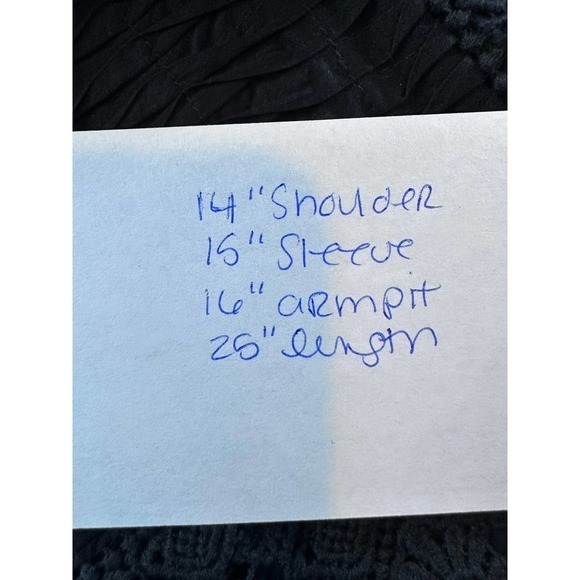 14" Shoulder
15" Sleeve
16" armpit
25" length